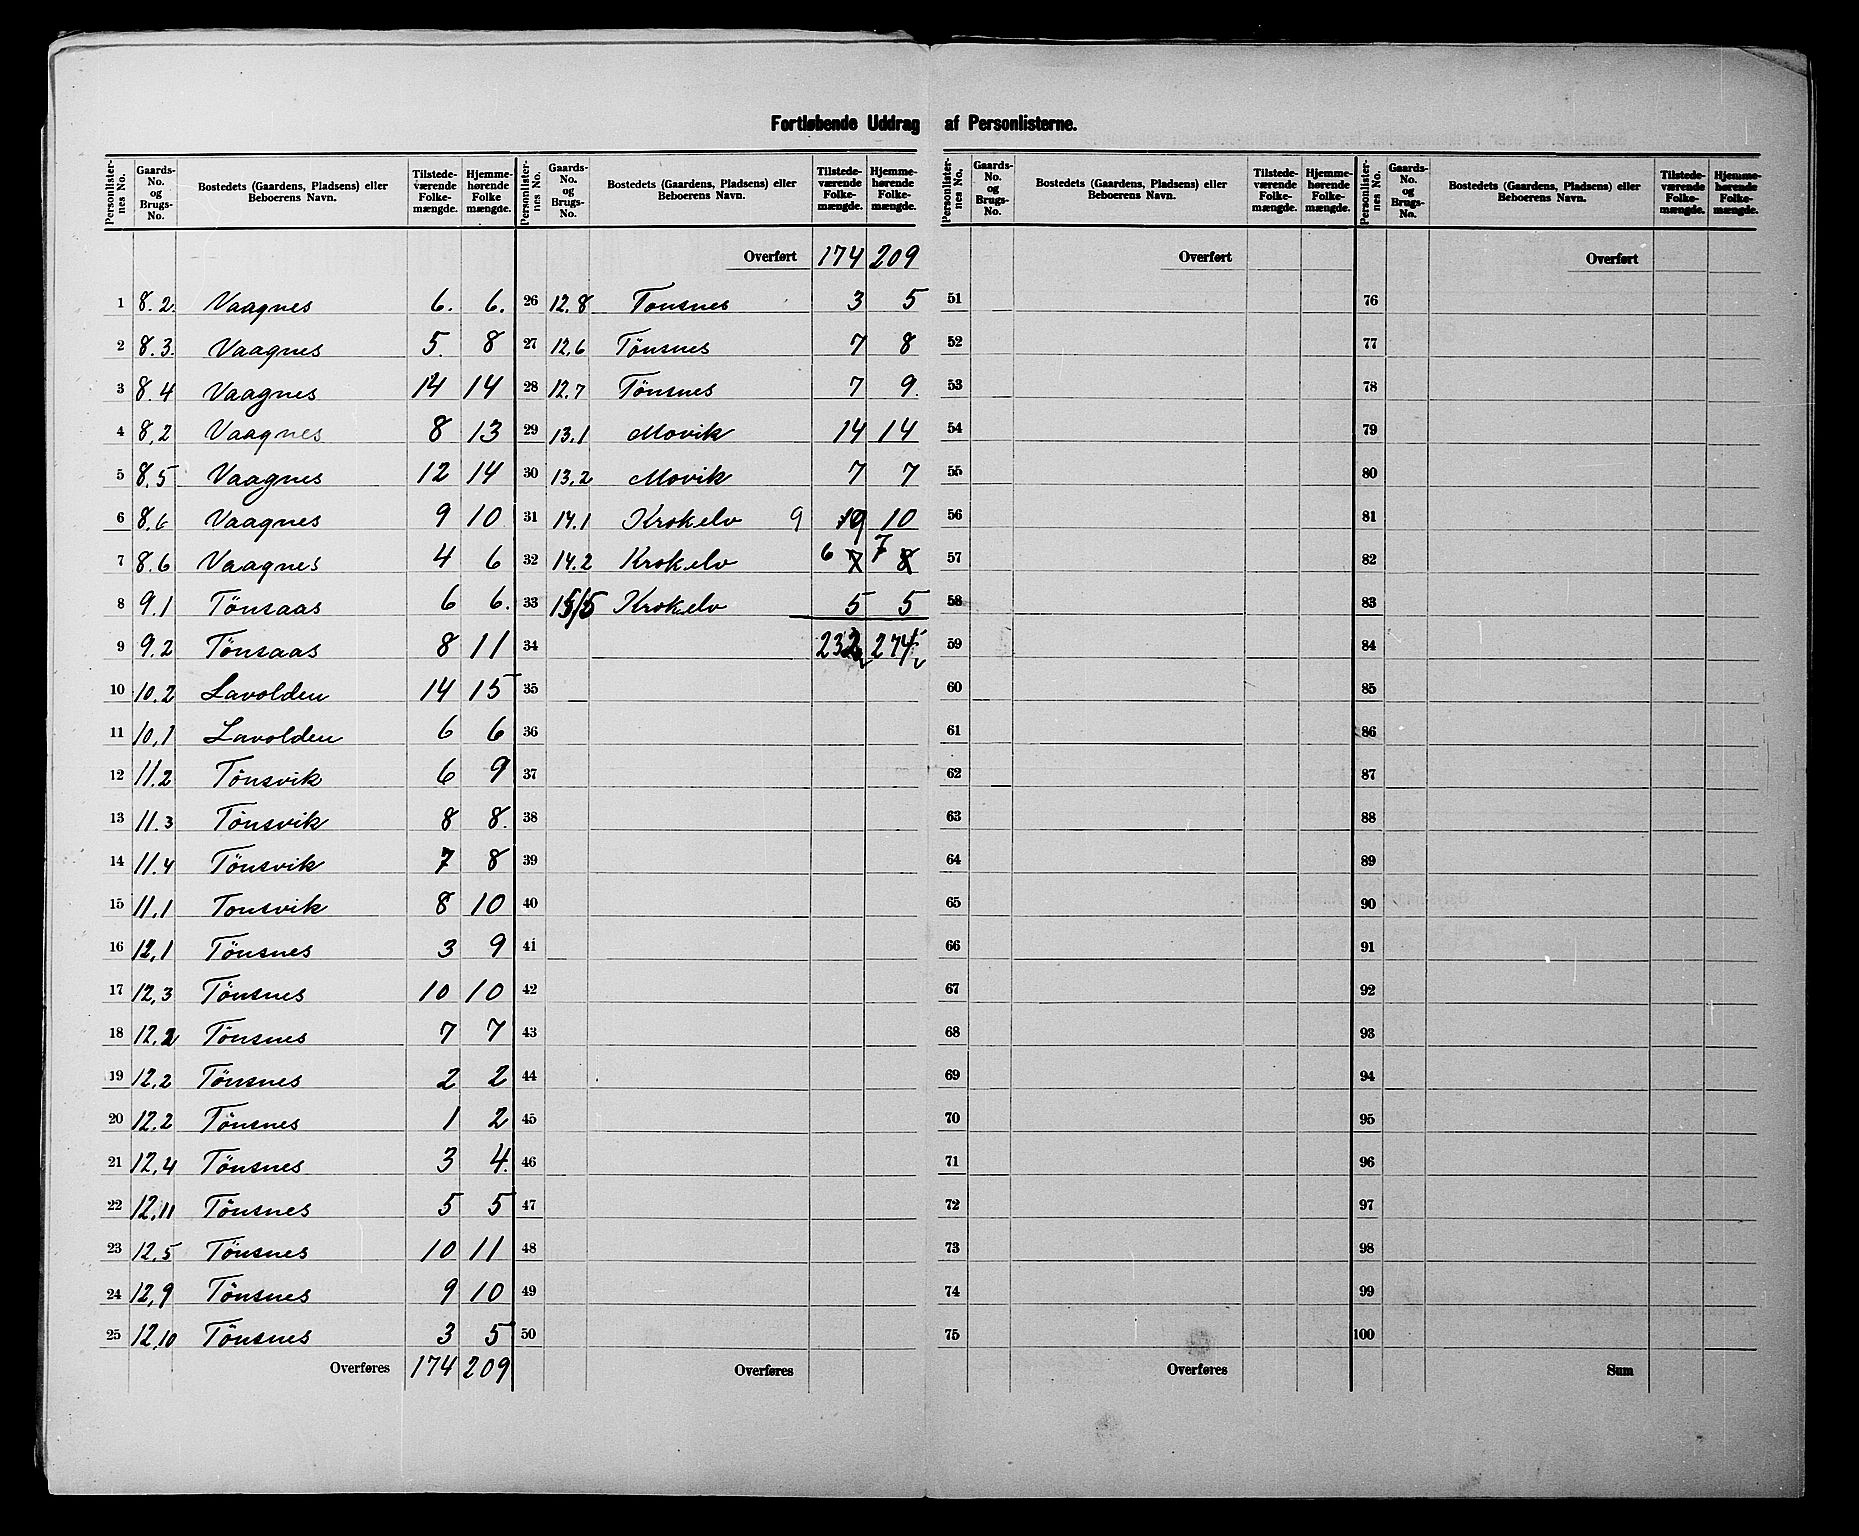 Fortløbende Uddrag af Personlisterne.
Personlister-nes No. | Gaards-No. og Brugs-No. | Bostedets (Gaardens, Pladsens) eller Beboerens Navn. | Tilstede-værende Folke-mængde. | Hjemme-hørende Folke mængde.
1 8.2. Vaagnes 6. 6.
2 8.3. Vaagnes 5. 8
3 8.4 Vaagnes 14 14
4 8,2 Vaagnes 8 13
5 8.5 Vaagnes 12 14
6 8.6 Vaagnes 9 10
7 8.6 Vaagnes 4 6
8 9.1 Tönsaas 6 6.
9 9.2 Tönsaas 8 11
10 10.2 Lavolden 14 15
11 10,1 Lavolden 6 6
12 11.2 Tönsvik 6 9
13 11.3 Tönsvik 8 8.
14 11.4 Tönsvik 7 8
15 11,1 Tonsvik 8 10
16 12,1 Tönsnes 3 9
17 12,3 Tönsnes 10 10
18 12,2 Tönsnes 7 7
19 12,2 Tönsnes 2 2
20 12.2 Tönsnes 1 2
21 12,4 Tönsnes 3 4.
22 12,11 Tönsnes 5 5
23 12,5 Tönsnes 10 11
24 12,9 Tönsnes 9 10
25 12,10 Tönsnes 3 5
Overføres 174 209
Personlister-nes No. | Gaards-No. og Brugs-No. | Bostedets (Gaardens, Pladsens) eller Beboerens Navn. | Tilstede-værende Folke-mængde. | Hjemme-hørende Folke-mængde.
Overført 174 209
26 12.8 Tonsnes 3 5
27 12,6 Tönsnes 7 8
28 12,7 Tönsnes 7 9.
29 13,1 Movik 14 14
30 13,2 Movik 7 7
31 14.1 Krokelv 9 10
32 14.2 Krokelv 6 7 7 8
33 15/5 Krokelv 5 5
34 232 274
35
36
37
38
39
40
41
42
43
44
45
46
47
48
49
50
Overføres
Personlister-nes No. | Gaards-No. og Brugs-No. | Bostedets (Gaardens, Pladsens) eller Beboerens Navn. | Tilstede-værende Folke-mængde. | Hjemme-hørende Folke-mængde.
Overført
51
52
53
54
55
56
57
58
59
60
61
62
63
64
65
66
67
68
69
70
71
72
73
74
75
Overføres
Personlister-nes No. | Gaards-No. og Brugs-No. | Bostedets (Gaardens, Pladsens) eller Beboerens Navn. | Tilstede-værende Folke-mængde. | Hjemme-hørende Folke-mængde.
Overført
76
77
78
79
80
81
82
83
84
85
86
87
88
89
90
91
92
93
94
95
96
97
98
99
100
Sum